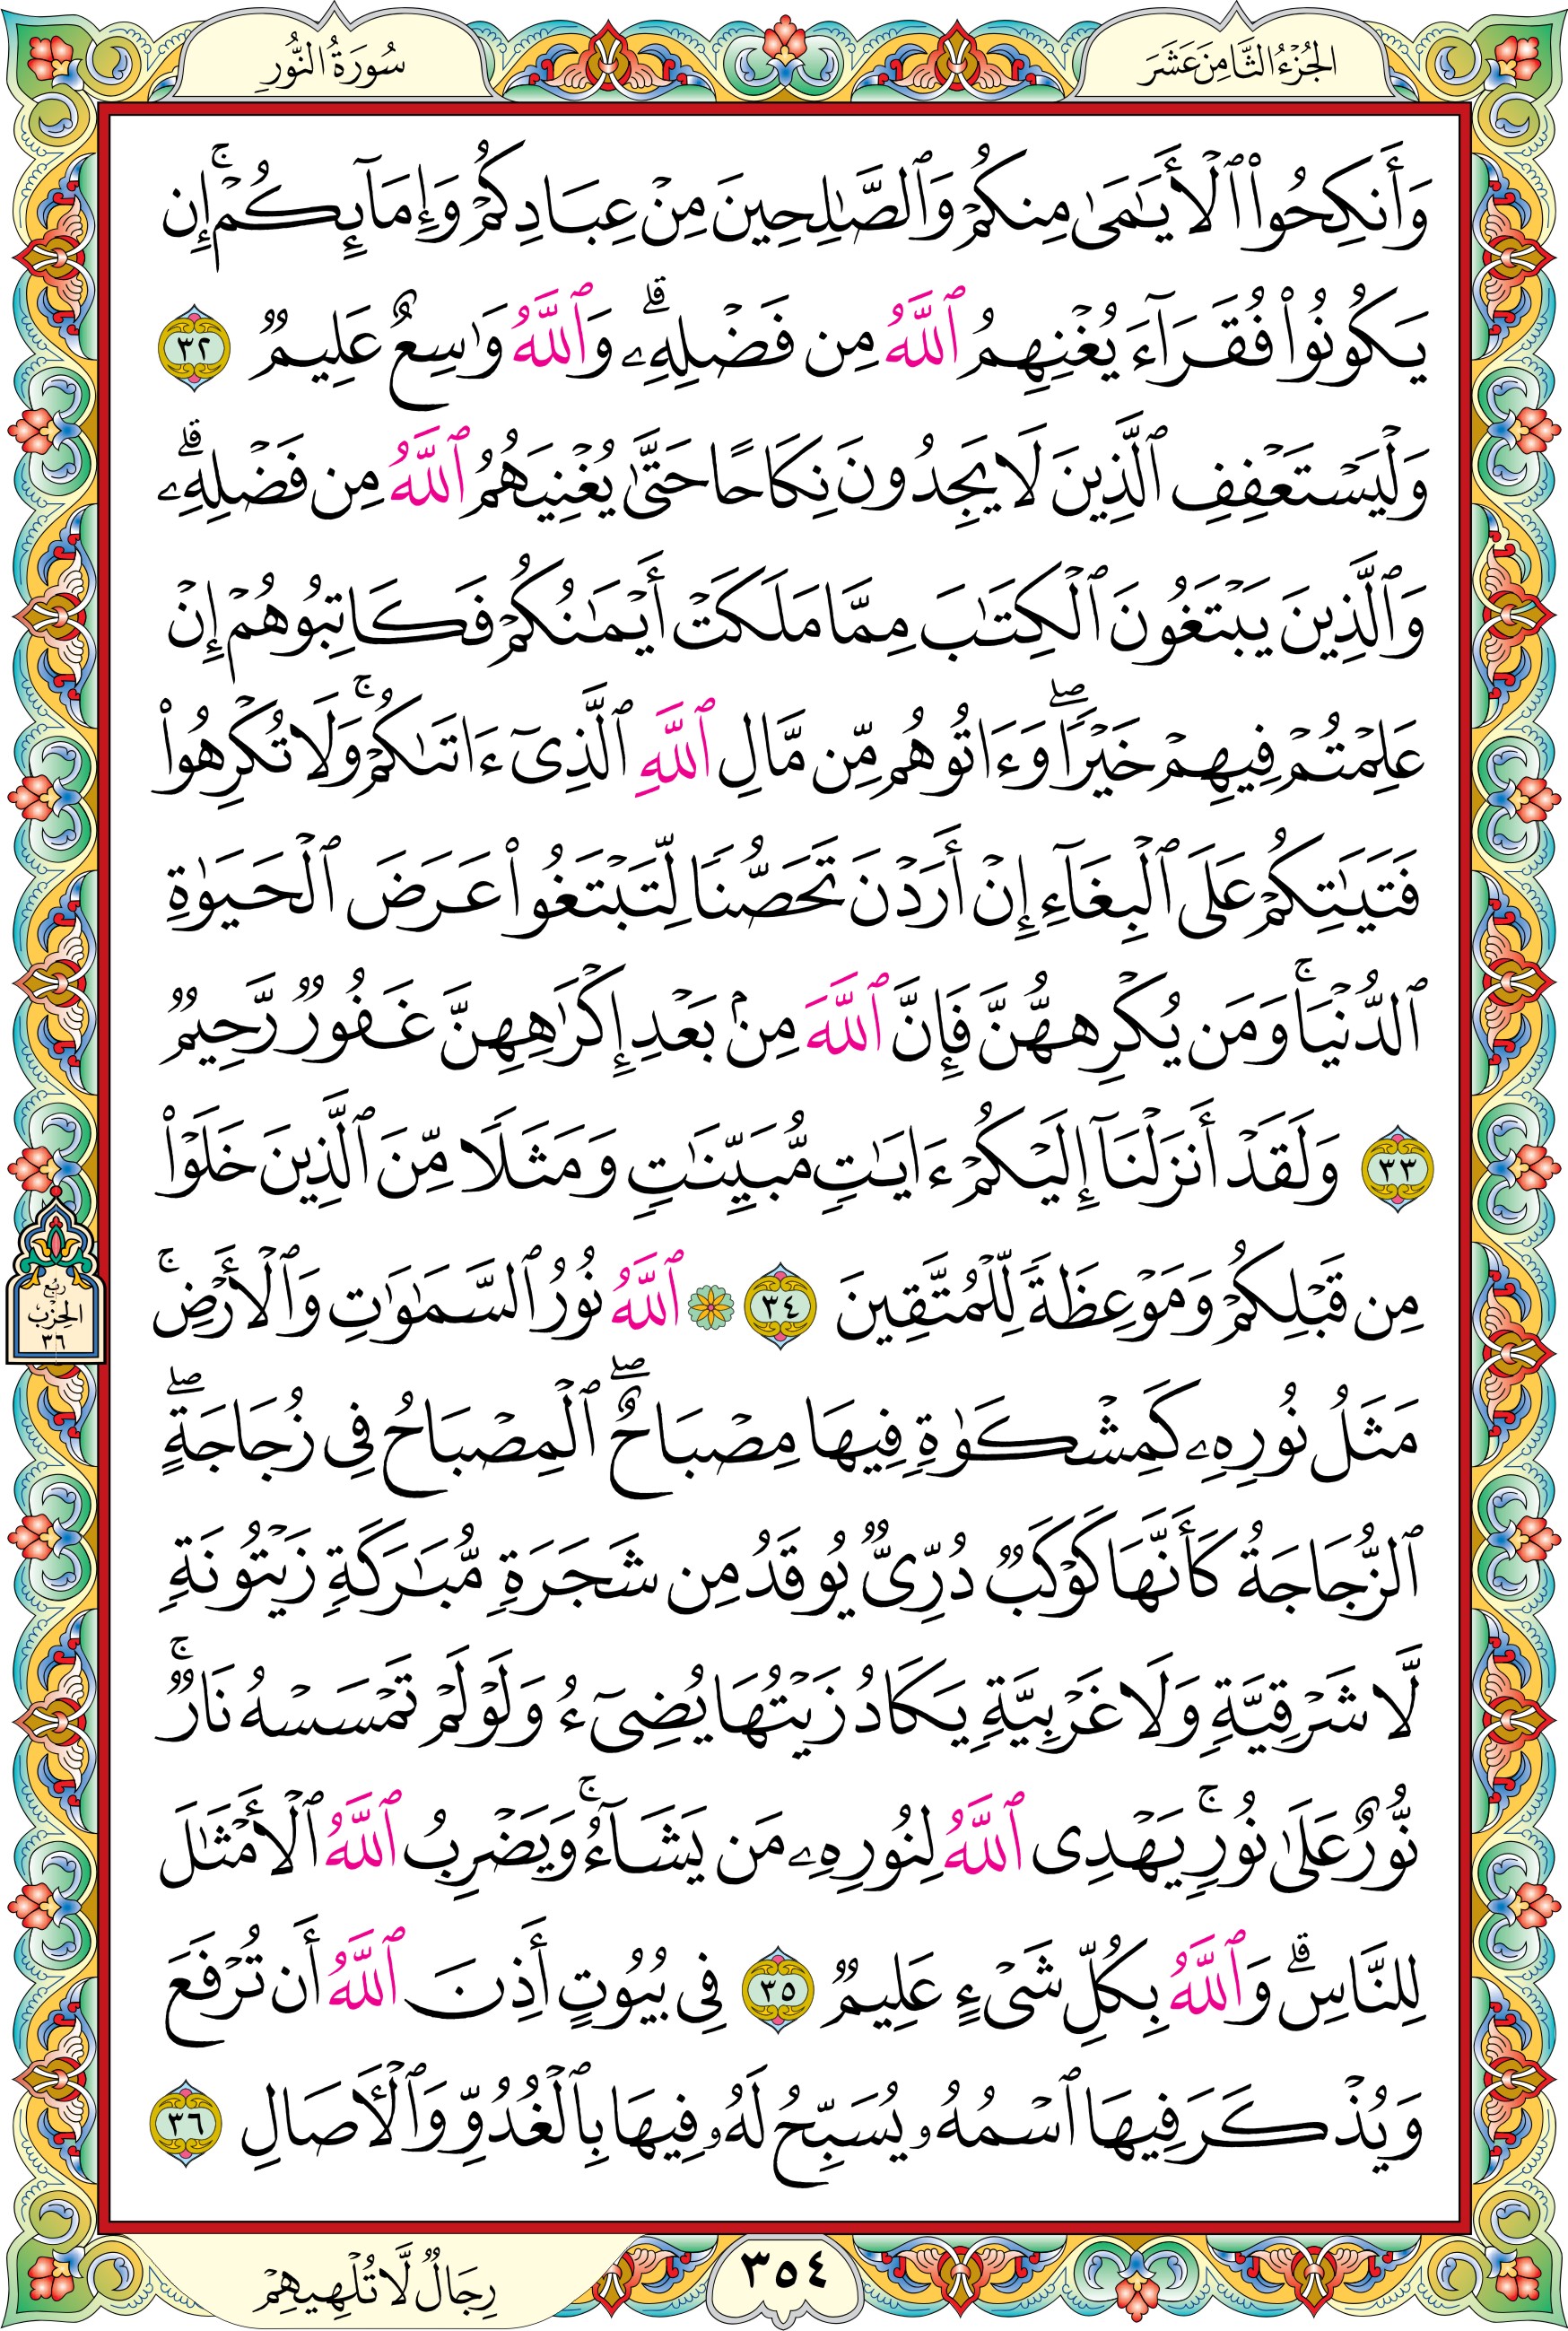 الجزء الثامن عشر
سورة النور
وَأَنكِحُوا۟ ٱلْأَيَـٰمَىٰ مِنكُمْ وَٱلصَّـٰلِحِينَ مِنْ عِبَادِكُمْ وَإِمَآئِكُمْ ۚ إِن
يَكُونُوا۟ فُقَرَآءَ يُغْنِهِمُ ٱللَّهُ مِن فَضْلِهِۦ ۗ وَٱللَّهُ وَٰسِعٌ عَلِيمٌ ٣٢
وَلْيَسْتَعْفِفِ ٱلَّذِينَ لَا يَجِدُونَ نِكَاحًا حَتَّىٰ يُغْنِيَهُمُ ٱللَّهُ مِن فَضْلِهِۦ ۗ
وَٱلَّذِينَ يَبْتَغُونَ ٱلْكِتَـٰبَ مِمَّا مَلَكَتْ أَيْمَـٰنُكُمْ فَكَاتِبُوهُمْ إِنْ
عَلِمْتُمْ فِيهِمْ خَيْرًا ۖ وَءَاتُوهُم مِّن مَّالِ ٱللَّهِ ٱلَّذِىٓ ءَاتَىٰكُمْ ۚ وَلَا تُكْرِهُوا۟
فَتَيَـٰتِكُمْ عَلَى ٱلْبِغَآءِ إِنْ أَرَدْنَ تَحَصُّنًا لِّتَبْتَغُوا۟ عَرَضَ ٱلْحَيَوٰةِ
ٱلدُّنْيَا ۚ وَمَن يُكْرِههُّنَّ فَإِنَّ ٱللَّهَ مِنۢ بَعْدِ إِكْرَٰهِهِنَّ غَفُورٌ رَّحِيمٌ
٣٣ وَلَقَدْ أَنزَلْنَآ إِلَيْكُمْ ءَايَـٰتٍ مُّبَيِّنَـٰتٍ وَمَثَلًا مِّنَ ٱلَّذِينَ خَلَوْا۟
مِن قَبْلِكُمْ وَمَوْعِظَةً لِّلْمُتَّقِينَ ٣٤ ۞ ٱللَّهُ نُورُ ٱلسَّمَـٰوَٰتِ وَٱلْأَرْضِ ۚ
ربع
الحزب
٣٦
مَثَلُ نُورِهِۦ كَمِشْكَوٰةٍ فِيهَا مِصْبَاحٌ ۖ ٱلْمِصْبَاحُ فِى زُجَاجَةٍ ۖ
ٱلزُّجَاجَةُ كَأَنَّهَا كَوْكَبٌ دُرِّىٌّ يُوقَدُ مِن شَجَرَةٍ مُّبَـٰرَكَةٍ زَيْتُونَةٍ
لَّا شَرْقِيَّةٍ وَلَا غَرْبِيَّةٍ يَكَادُ زَيْتُهَا يُضِىٓءُ وَلَوْ لَمْ تَمْسَسْهُ نَارٌ ۚ
نُّورٌ عَلَىٰ نُورٍ ۗ يَهْدِى ٱللَّهُ لِنُورِهِۦ مَن يَشَآءُ ۚ وَيَضْرِبُ ٱللَّهُ ٱلْأَمْثَـٰلَ
لِلنَّاسِ ۗ وَٱللَّهُ بِكُلِّ شَىْءٍ عَلِيمٌ ٣٥ فِى بُيُوتٍ أَذِنَ ٱللَّهُ أَن تُرْفَعَ
وَيُذْكَرَ فِيهَا ٱسْمُهُۥ يُسَبِّحُ لَهُۥ فِيهَا بِٱلْغُدُوِّ وَٱلْـَٔاصَالِ ٣٦
٣٥٤
رِجَالٌ لَّا تُلْهِيهِمْ